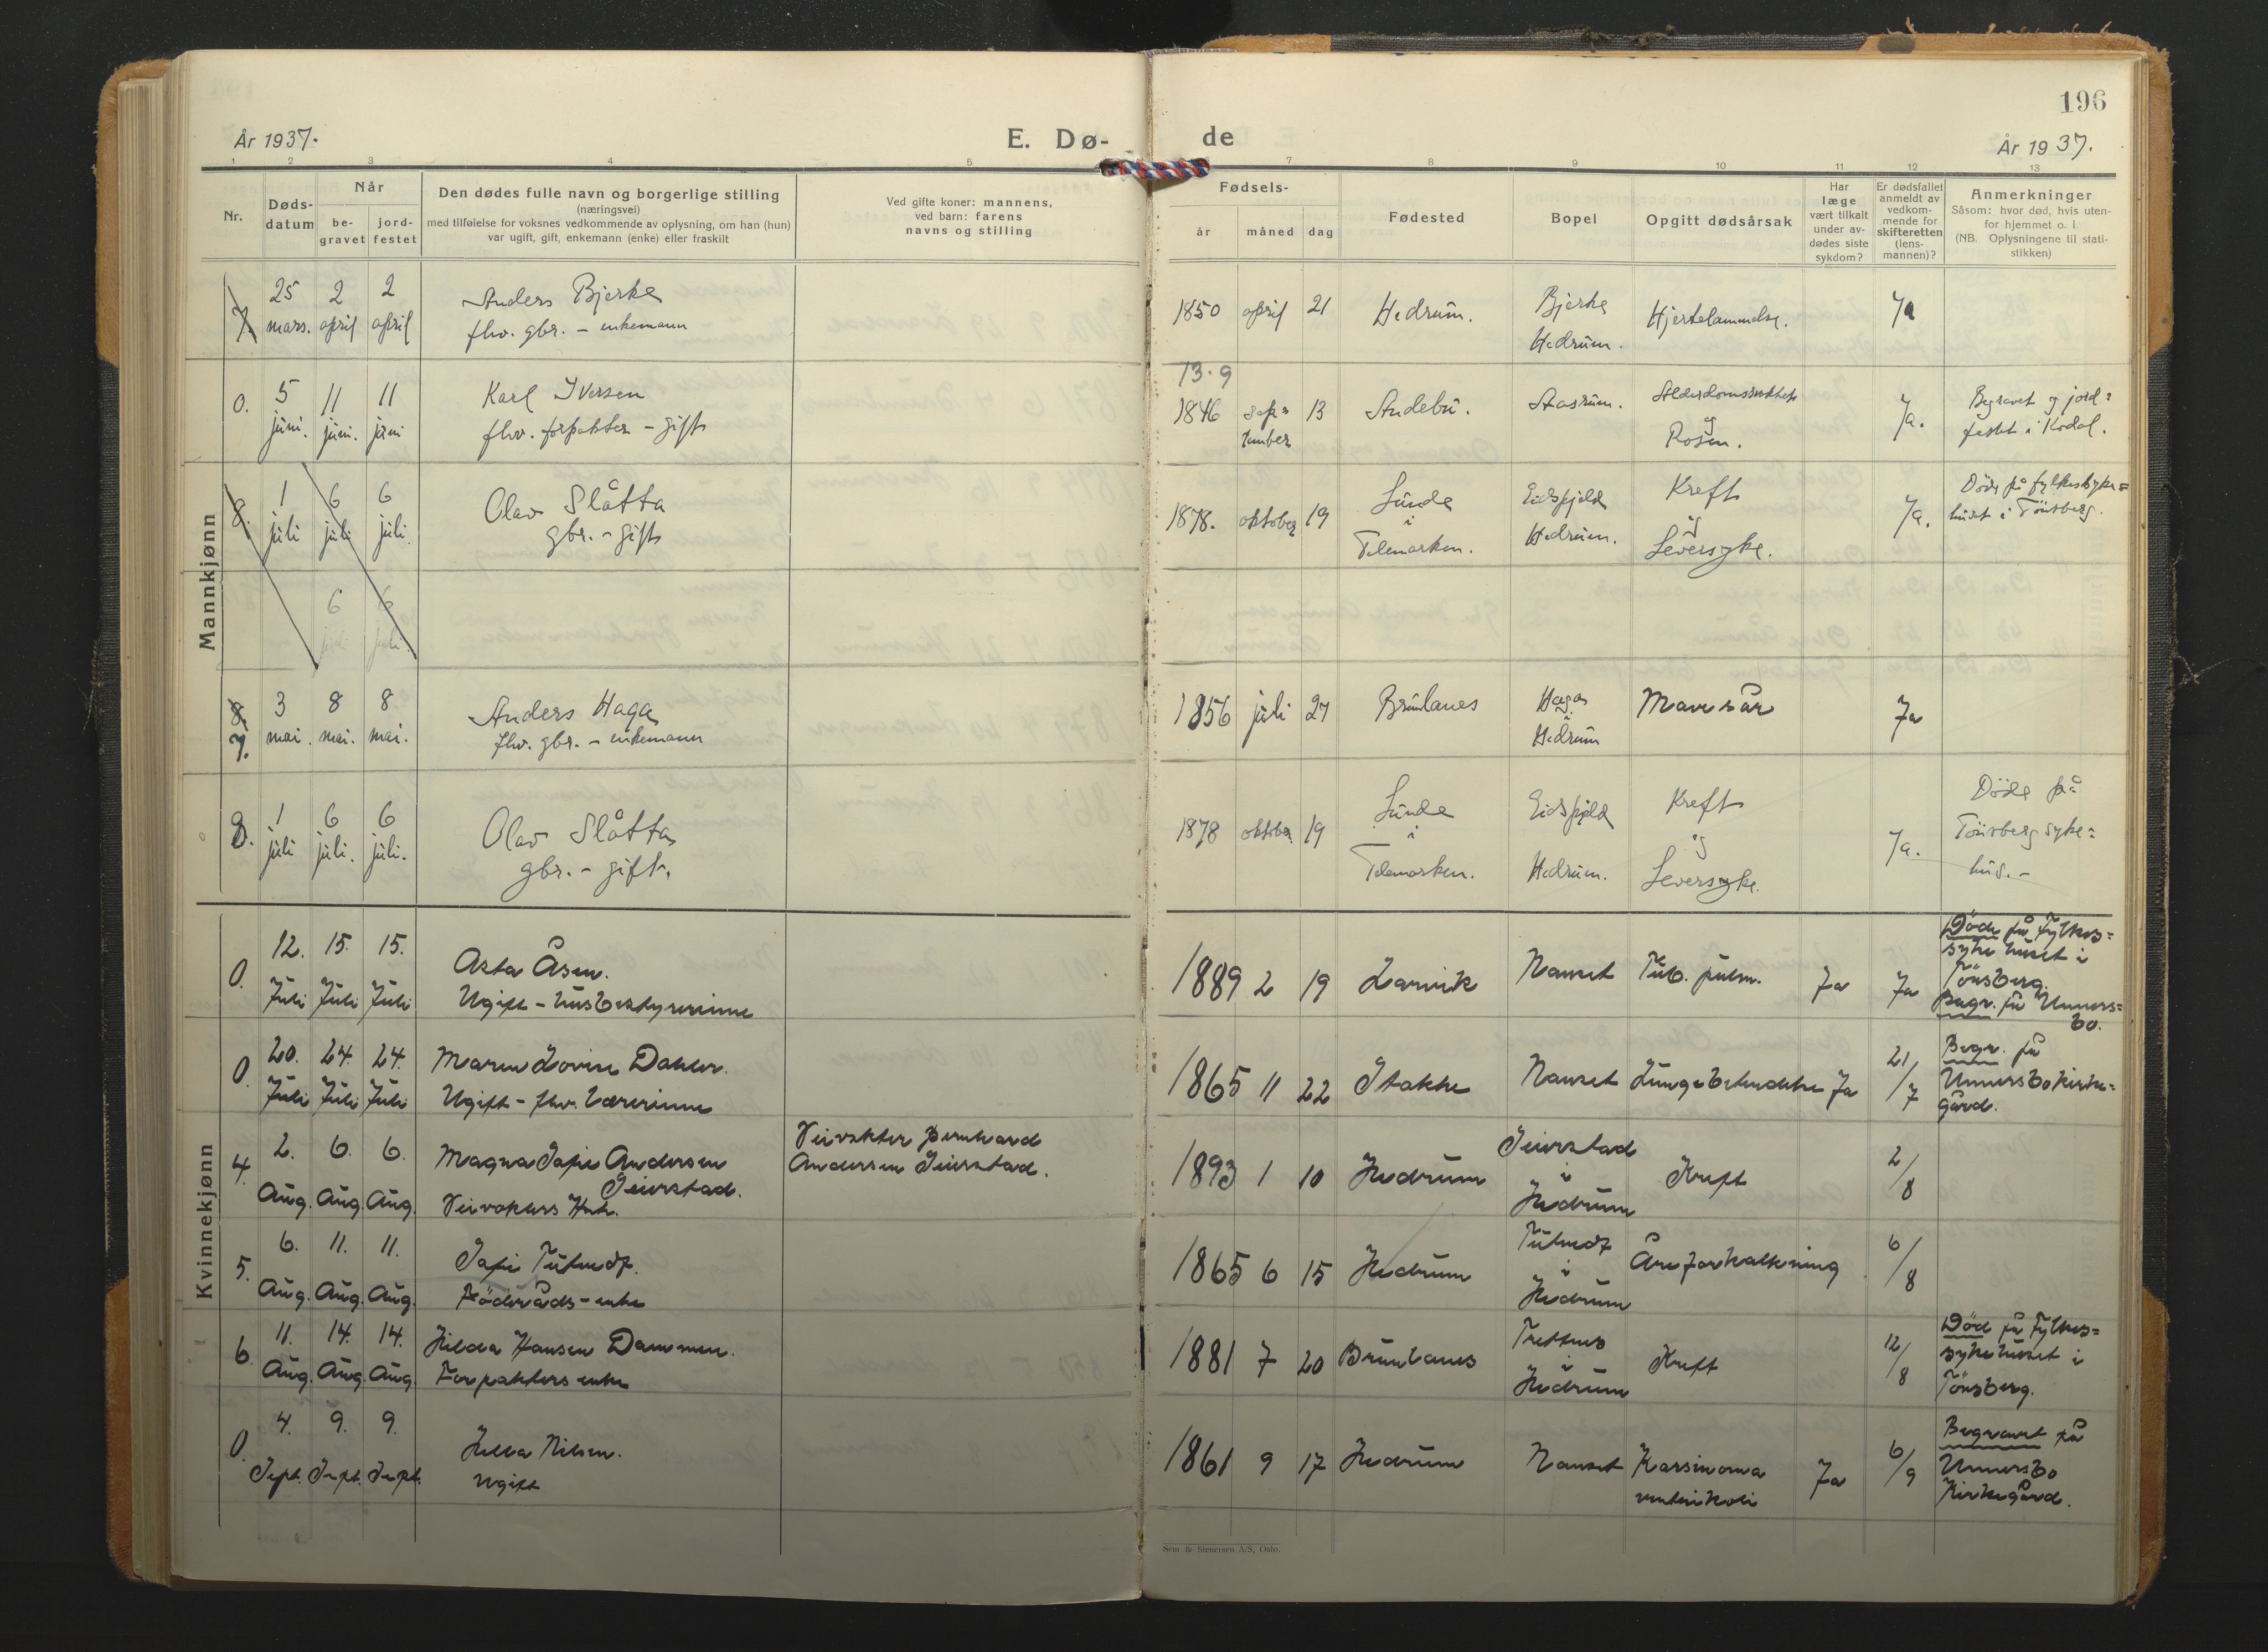 196
År 1937.
E. Dø-
de
År 1937.
1 2 3 4 5 7 8 9 10 11 12 13
Nr.
Døds-
datum
Når
be-
gravet
jord-
festet
Den dødes fulle navn og borgerlige stilling
(næringsvei)
med tilføielse for voksnes vedkommende av oplysning, om han (hun)
var ugift, gift, enkemann (enke) eller fraskilt
Ved gifte koner: mannens,
ved barn: farens
navns og stilling
Fødsels-
år
måned
dag
Fødested
Bopel
Opgitt dødsårsak
Har
læge
vært tilkalt
under av-
dødes siste
sykdom?
Er dødsfallet
anmeldt av
vedkom-
mende for
skifteretten
(lens-
mannen)?
Anmerkninger
Såsom: hvor død, hvis uten-
for hjemmet o. l.
(NB. Oplysningene til stati-
stikken)
Mannkjønn
7.
25 2 2
mars. april april
Anders Bjerke
fhv. gbr. - enkemann
1850 april 21
Hedrum.
Bjerke
Hedrum.
Hjertelammelse.
Ja
0.
5 11 11
juni. juni. juni
Karl Iversen
fhv. forpakter - gift
13.9
1846 sep=
tember 13
Andebu.
og
Rosen.
Ja.
Begravet og jord=
festet i Kodal.
8.
1 6 6
juli juli juli.
Olav Slåtta
gbr. - gift
1878. oktober 19
Lunde
i
Telemarken.
Eidsfjeld
Hedrum.
Kreft
og
Leversyke.
Ja.
Döde på fylkessyke=
huset i Tönsberg.
6 6
juli juli.
8.
7.
3 8 8
mai. mai. mai.
Anders Haga
fhv. gbr. - enkemann
1856 juli 27
Brunlanes
Haga
i
Hedrum
Mavesår
Ja
8.
1 6 6
juli juli. juli.
Olav Slåtta
gbr. - gift.
1878 oktober 19
Lunde
i
Telemarken.
Eidsfjeld
Hedrum.
Kreft
og
Leversyke.
Ja.
Döde på
Tönsberg syke=
hus. -
Kvinnekjønn
0.
12. 15. 15.
Juli Juli Juli
Asta Åsen.
Ugift - husbestyrerinne
1889 2 19
Larvik
Nanset
Tub. pulm.
Ja
Ja
Döde på Fylkes=
sykehuset i
Tönsberg.
Begr. på Undersbo.
0.
20. 24. 24.
Juli Juli Juli
Maren Lovise Dahler.
Ugift - fhv. Lærerinne
1865 11 22
Stokke
Nanset
Lungebetendelse
Ja
21/7
Begr. på
Undersbo kirke=
gård.
4.
2. 6. 6.
Aug. Aug. Aug.
Magna Sofie Andersen
Seierstad.
Veivokters Hust.
Veivokter Bernhard
Andersen Seierstad.
1893 1 10
Hedrum
Seierstad
i
Hedrum
Kreft
2/8
5.
6. 11. 11.
Aug. Aug. Aug.
Sofie
Föderåds-enke
1865 6 15
Hedrum
i
Hedrum
Åreforkalkning
6/8
6.
11. 14. 14.
Aug. Aug. Aug.
Hilda Hansen Dammen.
Forpakters enke
1881 7 20
Brunlanes
i
Hedrum
Kreft
12/8
Död på Fylkes=
sykehuset i
Tönsberg.
0.
4. 9. 9.
Sept. Sept. Sept.
Nilsen.
Ugift
1861 9 17
Hedrum
Nanset
Karsinoma
ventrikoli
Ja
6/9
Begravet på
Undersbo
Kirkegård.
Sem & Stenersen A/S, Oslo.